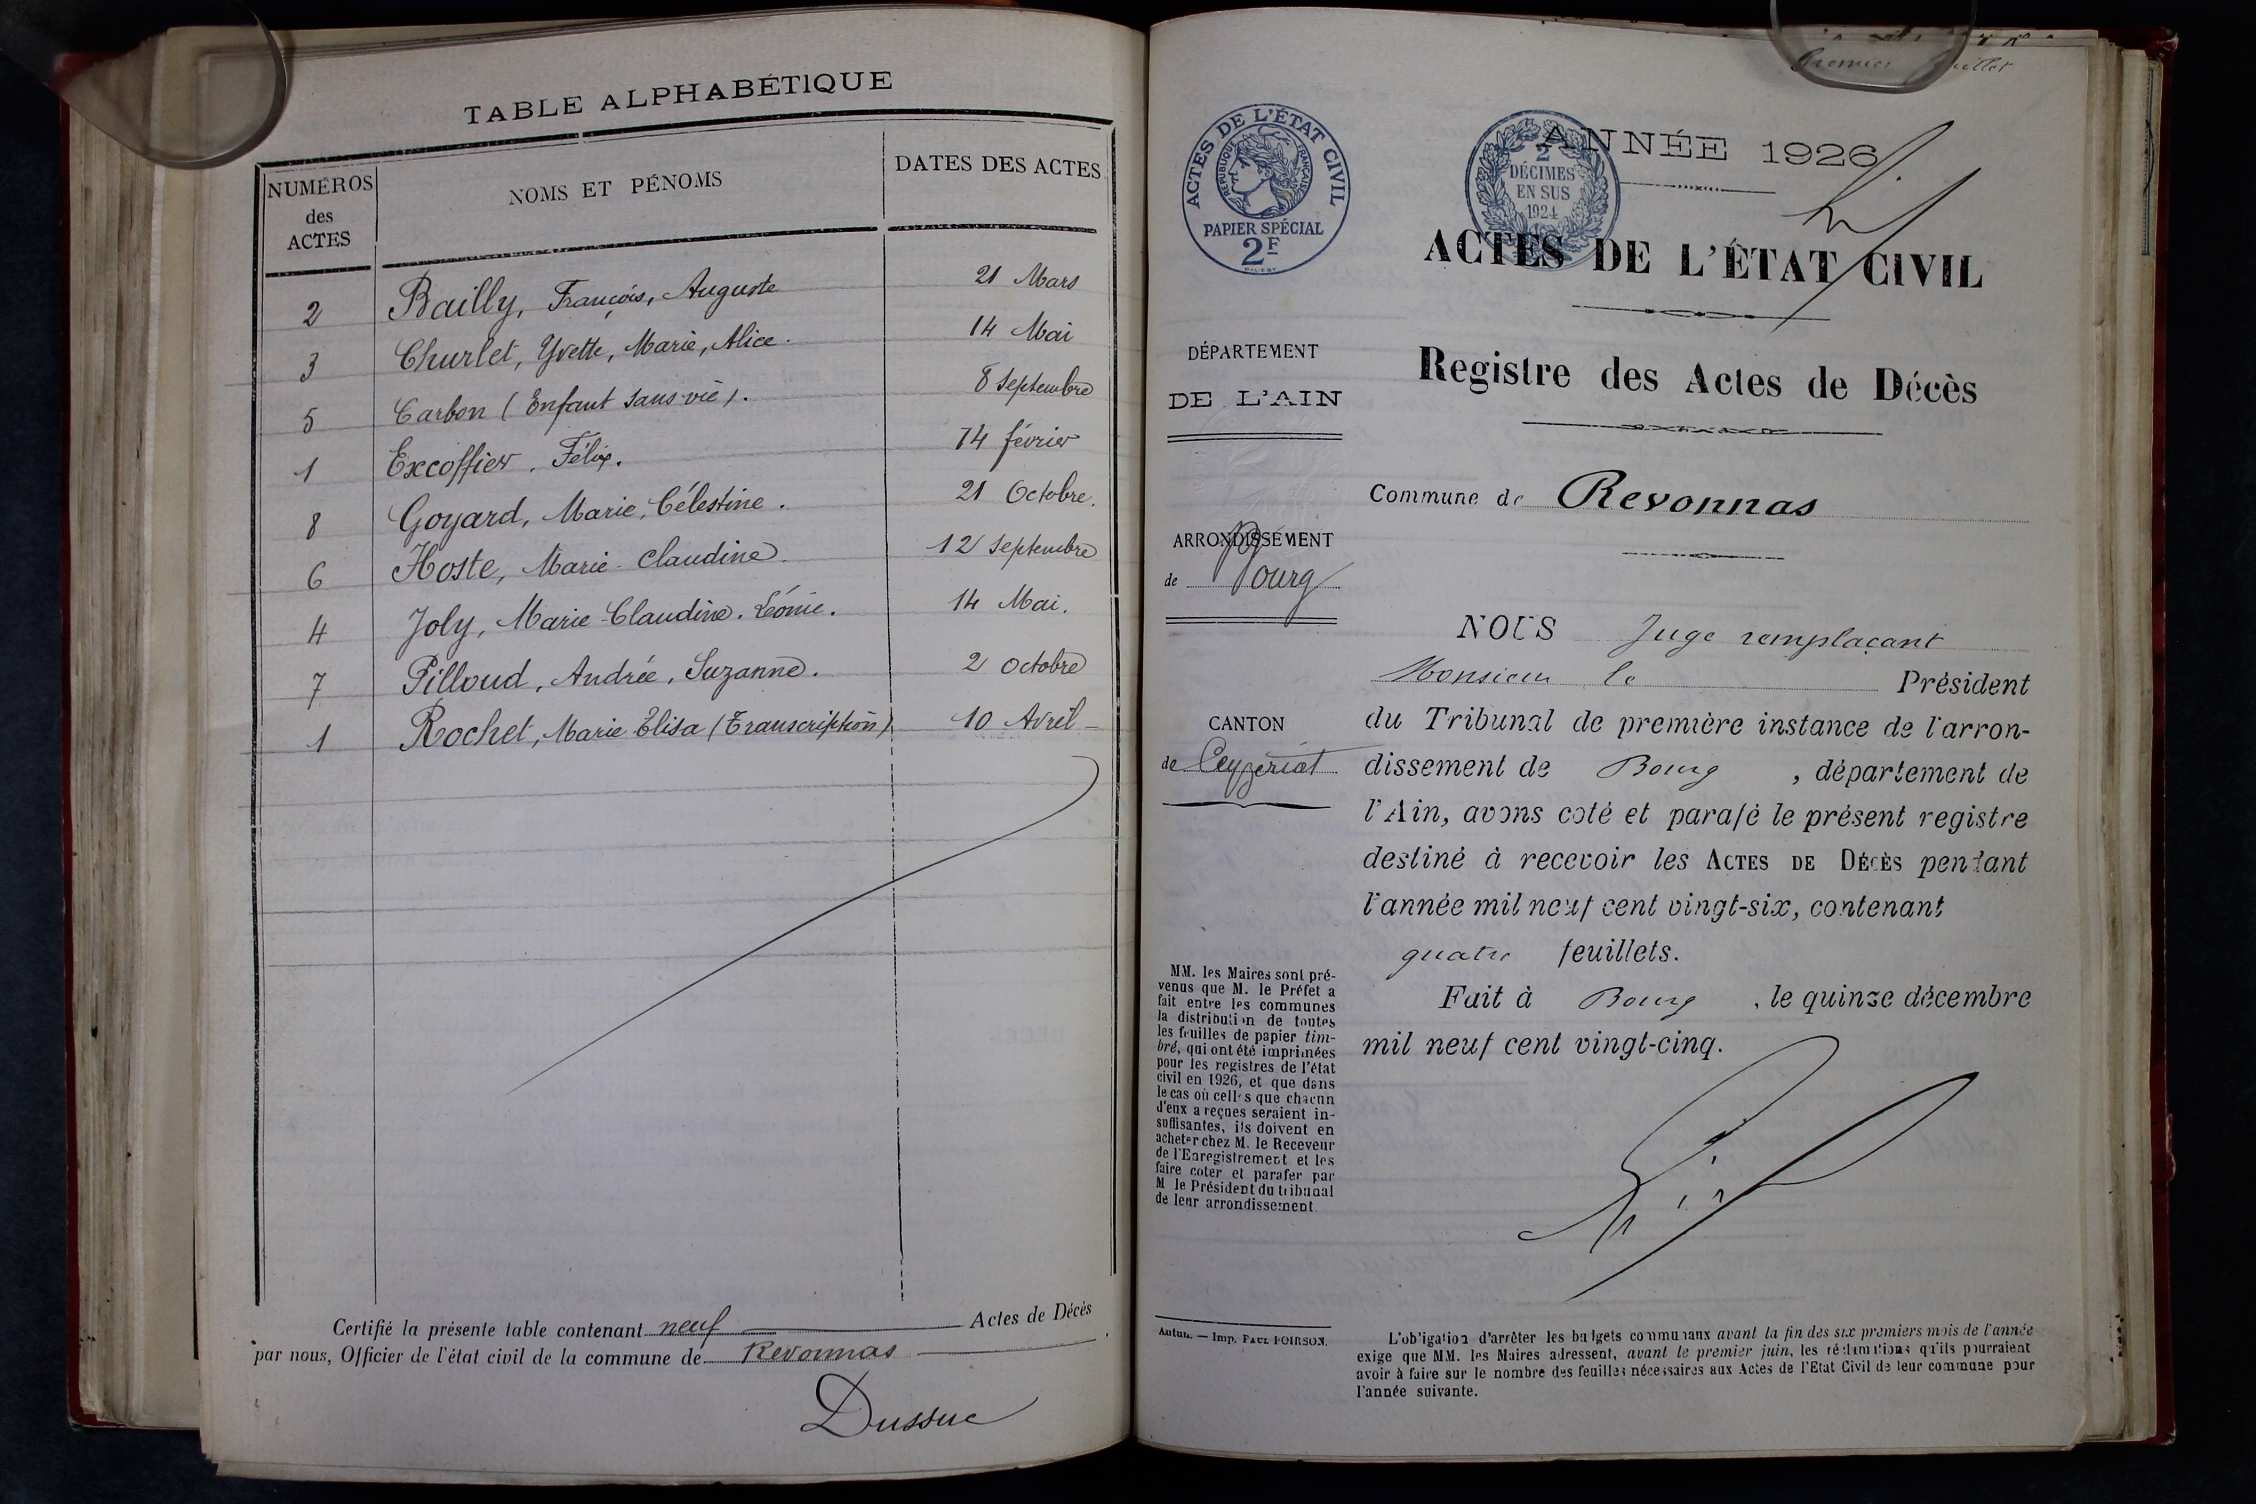 TABLE ALPHABÉTIQUE
NUMÉROS des ACTES
NOMS ET PÉNOMS
DATES DES ACTES
2 Bailly, François, Auguste 21 Mars
3 Churlet, Yvette, Marie, Alice. 14 Mai
5 Carbon (Enfant sans vie). 8 septembre
1 Excoffier, Félix. 14 février
8 Goyard, Marie, Célestine. 21 Octobre.
6 Hoste, Marie-Claudine. 12 septembre
4 Joly, Marie-Claudine. Léonie. 14 Mai.
7 Pilloud, Andrée, Suzanne. 2 octobre
1 Rochet, Marie Elisa (Transcription) 10 Avril
Certifié la présente table contenant neuf Actes de Décès
par nous, Officier de l'état civil de la commune de Revonnas
Dussuc
Premier feuillet
ACTES DE L'ÉTAT CIVIL
RÉPUBLIQUE FRANÇAISE
PAPIER SPÉCIAL
2F
2
DÉCIMES
EN SUS
1924
ANNÉE 1926
ACTES DE L'ÉTAT CIVIL
Registre des Actes de Décès
DÉPARTEMENT
DE L'AIN
ARRONDISSEMENT
de Bourg
CANTON
de Ceyzeriat
MM. les Maires sont pré-
venus que M. le Préfet a
fait entre les communes
la distribution de toutes
les feuilles de papier tim-
bré, qui ont été imprimées
pour les registres de l'état
civil en 1926, et que dans
le cas où celles que chacun
d'eux a reçues seraient in-
suffisantes, ils doivent en
acheter chez M. le Receveur
de l'Enregistrement et les
faire coter et parafer par
M le Président du tribunal
de leur arrondissement.
Autun. — Imp. PAUL POIRSON.
Commune de Revonnas
NOUS Juge remplaçant
Monsieur le Président
du Tribunal de première instance de l'arron-
dissement de Bourg, département de
l'Ain, avons coté et parafé le présent registre
destiné à recevoir les ACTES DE DÉCÈS pendant
l'année mil neuf cent vingt-six, contenant
quatre feuillets.
Fait à Bourg, le quinze décembre
mil neuf cent vingt-cinq.
L'obligation d'arrêter les budgets communaux avant la fin des six premiers mois de l'année
exige que MM. les Maires adressent, avant le premier juin, les réclamations qu'ils pourraient
avoir à faire sur le nombre des feuilles nécessaires aux Actes de l'Etat Civil de leur commune pour
l'année suivante.